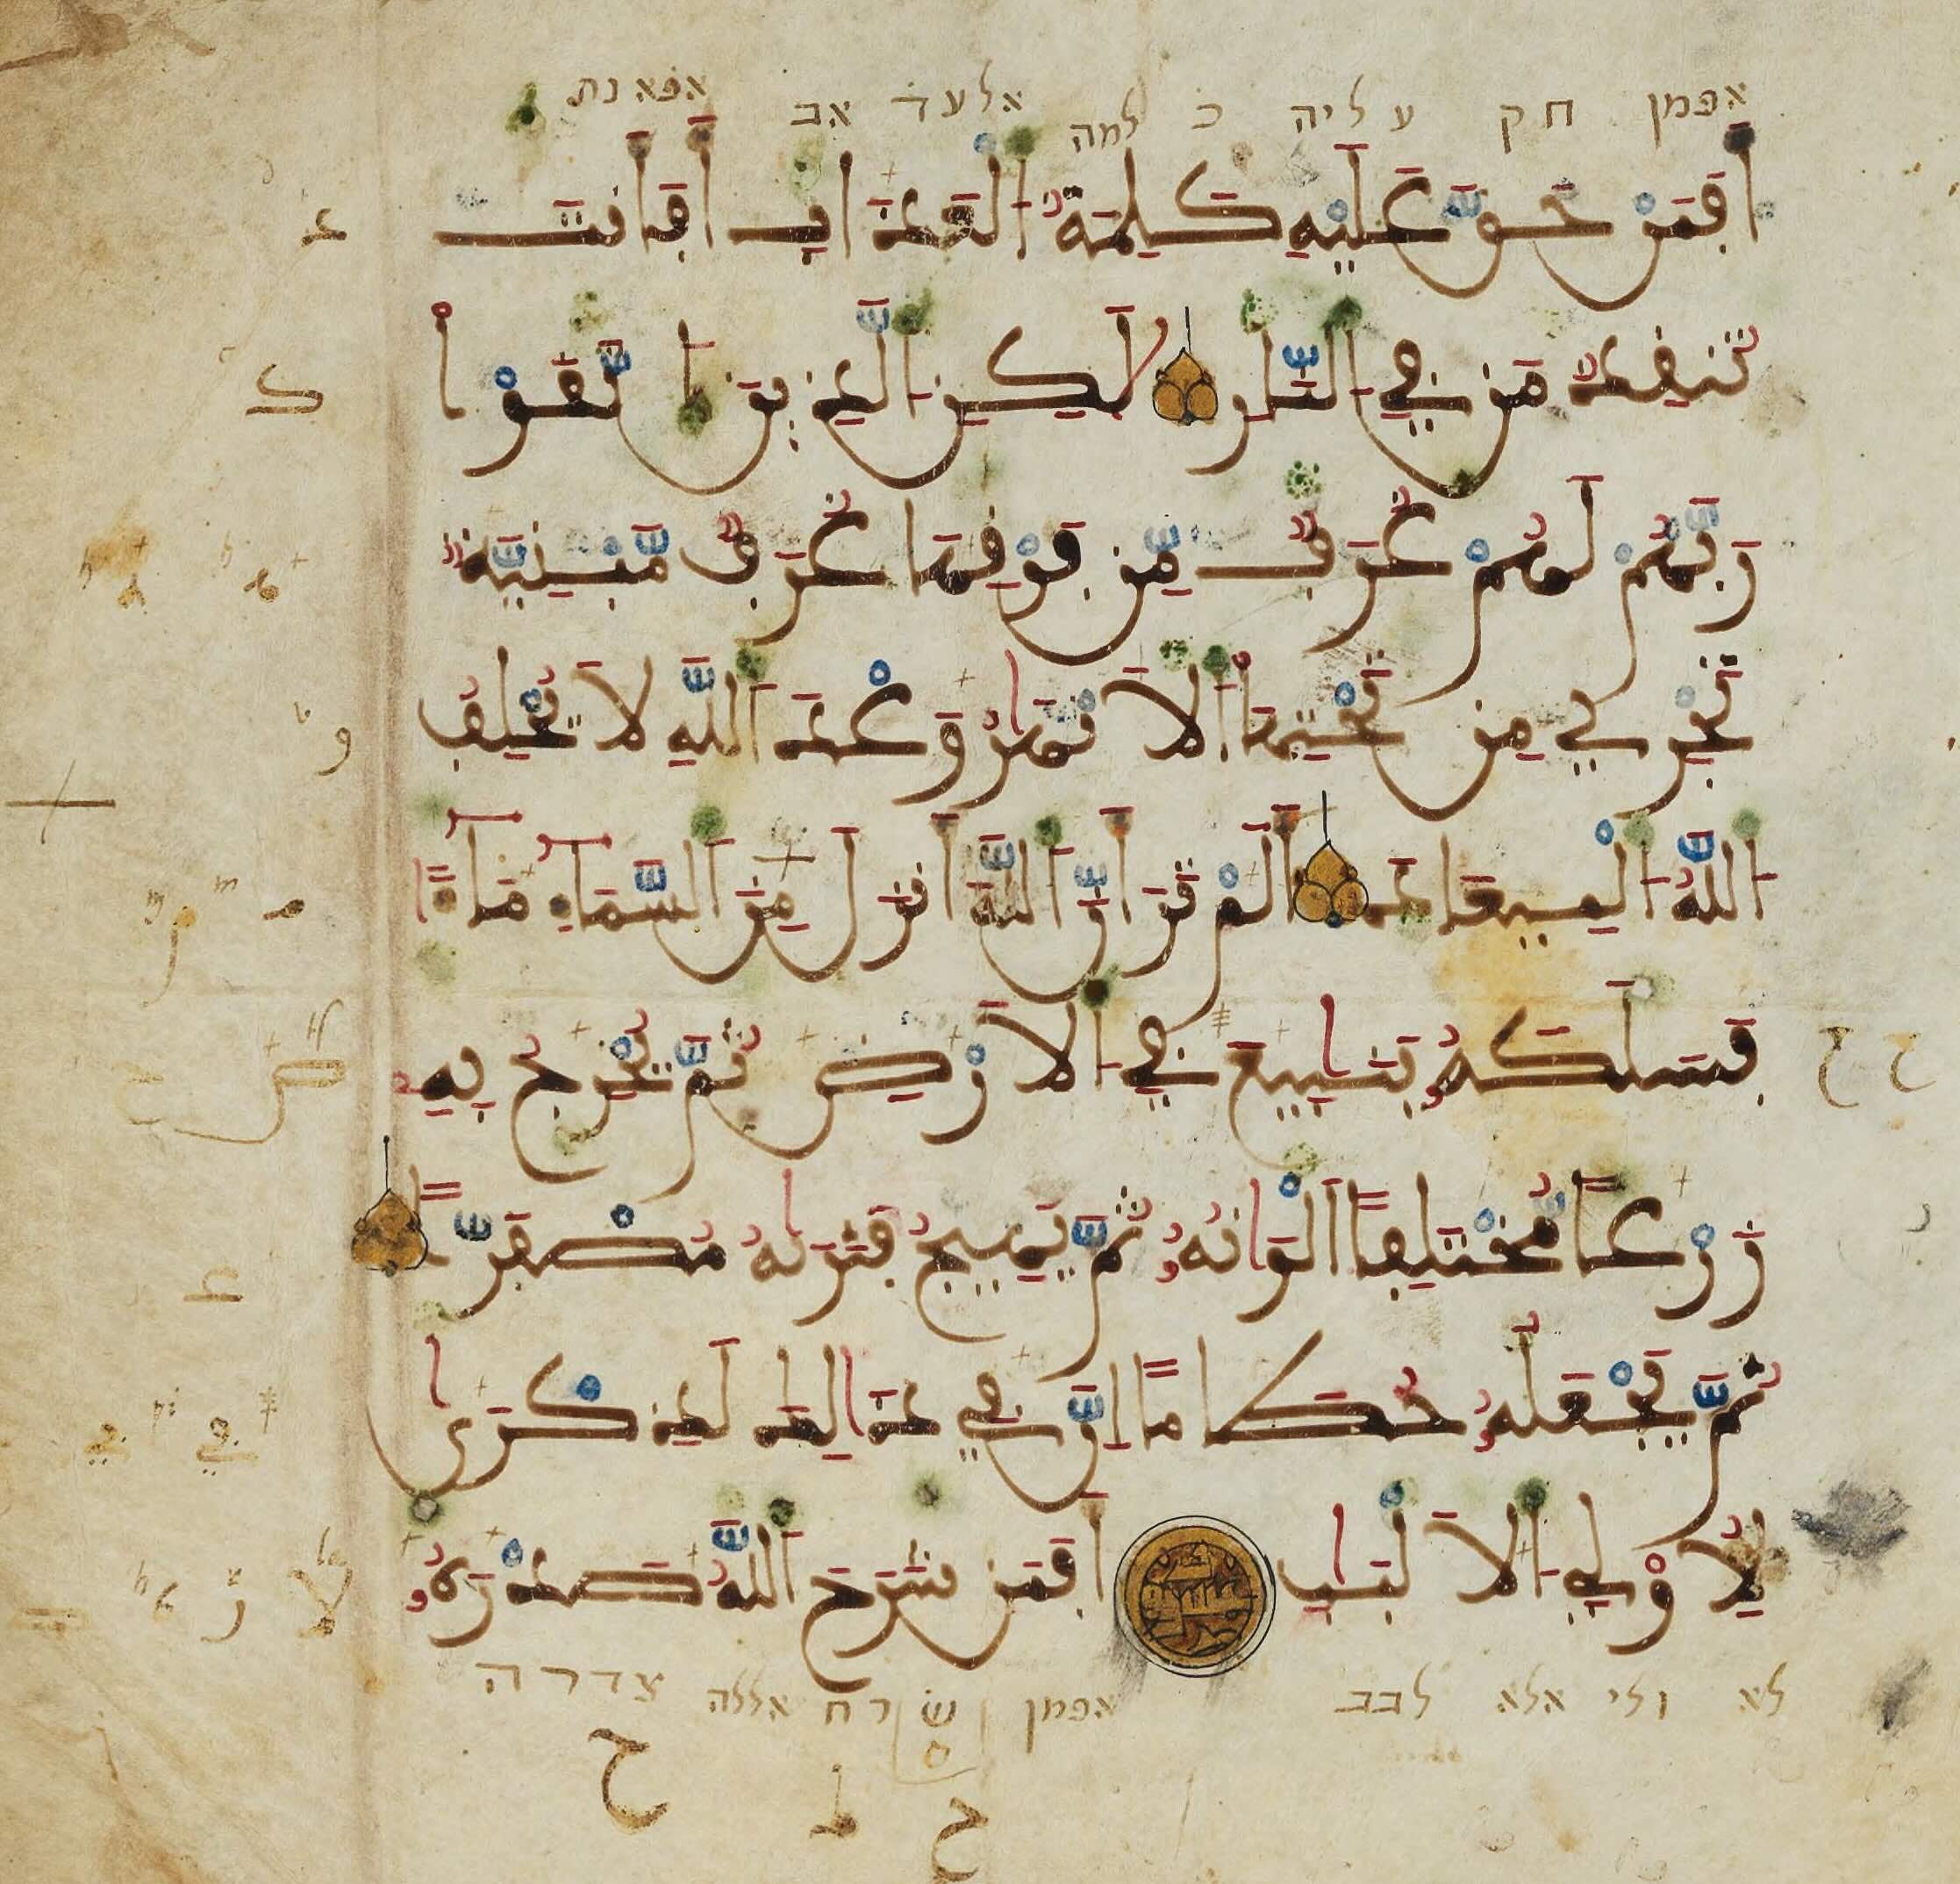 אפמן חק עליה כ למה אלעד אב אפאנת
أَفَمَنْ حَقَّ عَلَيْهِ كَلِمَةُ الْعَذَابِ أَفَأَنتَ
تُنقِذُ مَن فِي النَّارِ لَٰكِنِ الَّذِينَ اتَّقَوْا
رَبَّهُمْ لَهُمْ غُرَفٌ مِّن فَوْقِهَا غُرَفٌ مَّبْنِيَّةٌ
تَجْرِي مِن تَحْتِهَا الْأَنْهَٰرُ وَعْدَ اللَّهِ لَا يُخْلِفُ
اللَّهُ الْمِيعَادَ أَلَمْ تَرَ أَنَّ اللَّهَ أَنزَلَ مِنَ السَّمَاءِ مَاءً
فَسَلَكَهُ يَنَٰبِيعَ فِي الْأَرْضِ ثُمَّ يُخْرِجُ بِهِ
زَرْعًا مُّخْتَلِفًا أَلْوَٰنُهُ ثُمَّ يَهِيجُ فَتَرَىٰهُ مُصْفَرًّا
ثُمَّ يَجْعَلُهُ حُطَامًا إِنَّ فِي ذَٰلِكَ لَذِكْرَىٰ
لِأُولِي الْأَلْبَٰبِ أَفَمَن شَرَحَ اللَّهُ صَدْرَهُ
לא ולי אלא לבב אפמן שרח אללה צדרה